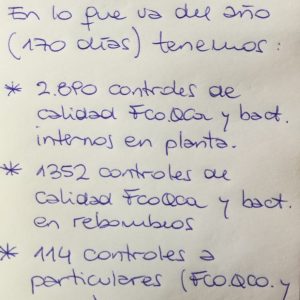 En lo que va del año
(170 días) tenemos:
* 2.890 controles de
calidad FcoQca y bact.
internos en planta.
* 1352 controles de
calidad FcoQca y bact.
en rebombeos
* 114 controles a
particulares (FCO.QCO. y